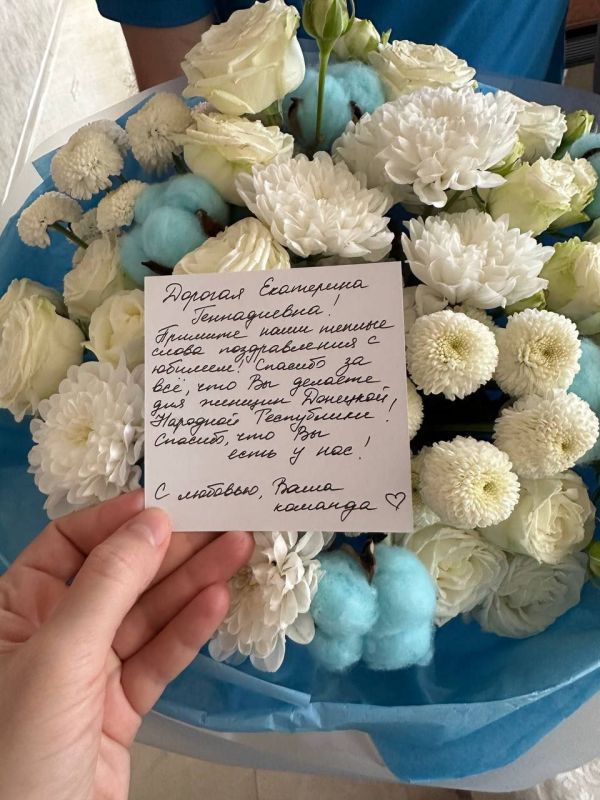 Дорогая Екатерина
Геннадиевна!
Примите наши теплые
слова поздравления с
юбилеем! Спасибо за
всё, что Вы делаете
для женщин Донецкой
Народной Республики!
Спасибо, что Вы
есть у нас!
С любовью, Ваша
команда ♡